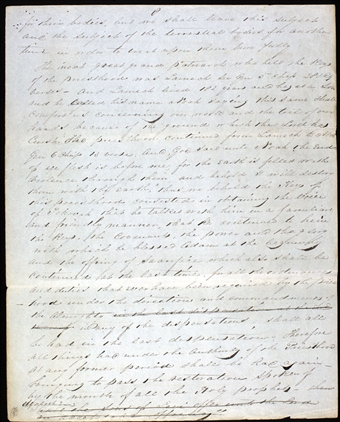 for their bodies, but we shall leave this subject
and the subject of the terrestial bodies for another
time in order to treat upon them more fully
The next great grand Patriarch who held the Keys
of the priesthood was Lamech See Gen 5 chap 28 & 29
verses and Lamech lived 182 years and begat a Son
and he called his name Noah saying this same shall
comfort us concerning our work and the toil of our
hands because of the ground which the Lord has
Curst. The priesthood continued from Lamech to Noah
Gen 6 chap 13 verse And God said unto Noah the end
of all flesh is before me, for the Earth is filled with
violence through them and behold I will destroy
them with the earth, thus we behold the Keys of
this priesthood consisted in obtaining the voice
of Jehovah that he talked with him in a familiar
and friendly manner, that he continued to him
the Keys, the Covenants, the power and the glory
with which he blessed Adam at the beginning
and the offring of Sacrifice which also shall be
continued at the last time, for all the ordinances
and duties that ever have been required by the priest
hood under the directions and commandments of
the Almighty in the last dispensation
in any of the dispensations, shall all
be had in the last dispensation. Therefore
all things had under the Authority of the Priesthood
at any former period shall be had again
bringing to pass the restoration spoken of
by the mouth of all the Holy Prophets, then